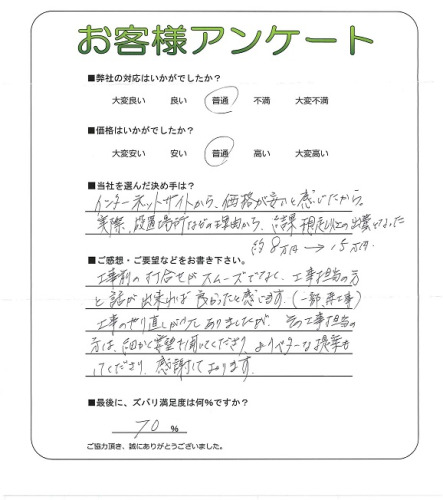 お客様アンケート
■弊社の対応はいかがでしたか?
大変良い 良い 普通 不満 大変不満
■価格はいかがでしたか?
大変安い 安い 普通 高い 大変高い
■当社を選んだ決め手は?
インターネットサイトから、価格が安いと感じたから。
実際、設置場所などの理由から、結果予想以上の出費となった
約8万円→15万円
■ご感想・ご要望などをお書き下さい。
工事前の打合せがスムーズでなく、工事担当の方
と話が出来れば良かったと感じます。(一部
工事のやり直しが ありましたが、その工事担当の
方は、細かく要望も聞いてくださり、よりベターな提案も
してくださり、感謝しております。
■最後に、ズバリ満足度は何%ですか?
70 %
ご協力頂き、誠にありがとうございました。